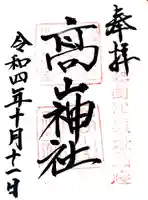 奉拝
髙山神社
令和四年十月十一日